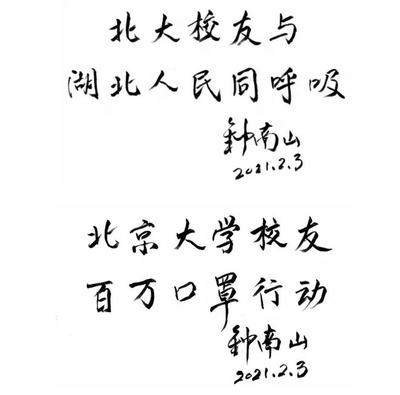 北大校友与
湖北人民同呼吸
钟南山
2021.2.3
北京大学校友
百万口罩行动
钟南山
2021.2.3